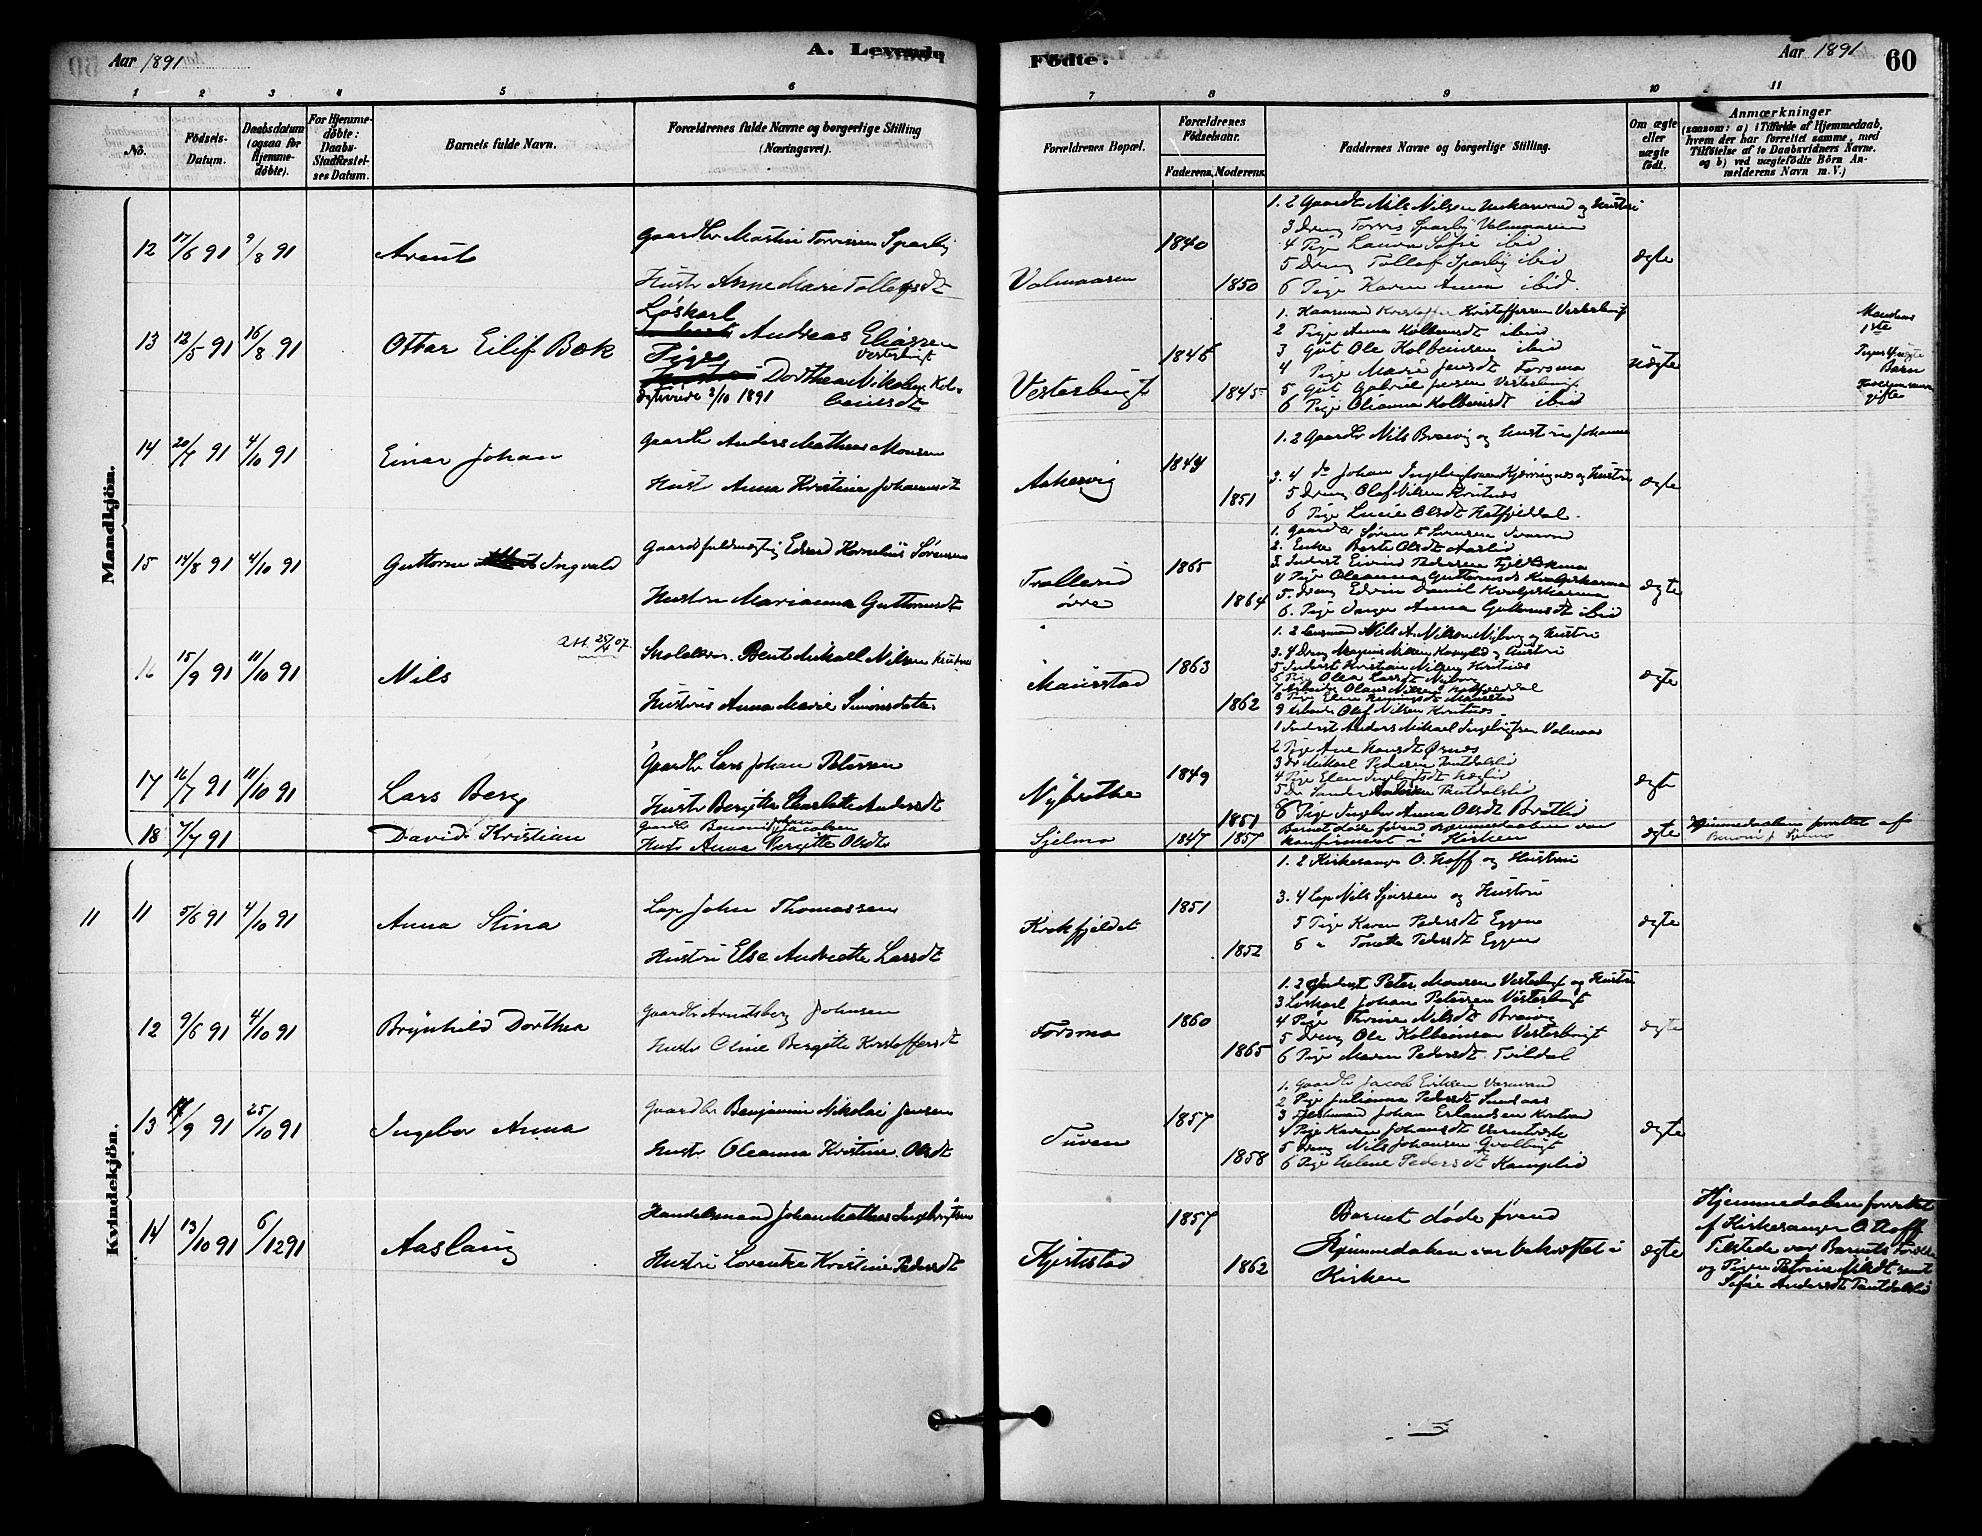 Aar 1891
A. Levende
Födte.
Aar 1891
60
1 2 3 4 5 6 7 8 9 10 11
No.
Födsels-
Datum.
Daabsdatum
(ogsaa for
Hjemme-
döbte).
For Hjemme-
döbte:
Daabs-
Stadfæstel-
ses Datum.
Barnets fulde Navn.
Forældrenes fulde Navne og borgerlige Stilling
(Næringsvei).
Forældrenes Bopæl.
Forældrenes
Födselsaar.
Faderens. Moderens.
Faddernes Navne og borgerlige Stilling.
Om ægte
eller
uægte
födt.
Anmærkninger
(saasom: a) i Tilfælde af Hjemmedaab,
hvem der har forrettet samme, med
Tilföielse af to Daabsvidners Navne.
og b) ved uægtefödte Börn An-
melderens Navn m. V.)
Mandkjön.
12 17/6 91 9/8 91
Arent
Gaardbr Martin Torrissen Sparby
Hustr Anne Marie Tollefsdt
Valmaasen
1840
1850
1. 2 Gaardbr Nils Nilsen og Hustru
3 Dreng Torris Sparby Valmaasen
4 Pige Laura Sofie ibid
5 Dreng Tollof Sparby ibid
6 Pige Karen Anna ibid.
ægte
13 12/5 91 16/8 91
Ottar Eilif Bæk
Løskarl
Andreas Eliassen
Vesterbugt
Pige
Dorthea Nikoline Kol-
beinsdt
Ægteviede 2/10 1891
Vesterbugt
1845
1. Kaarmand Kristoffer Kristoffersen Vesterbugt
2 Pige Anna Kolbeinsdt ibid
3 Gut Ole Kolbeinsen ibid
4 Pige Marie Jensdt Forsma
5 Gut Gabriel Jensen Vesterbugt
6 Pige Olianna Kolbeinsdt ibid
uægte
Mandens
1ste
Pigens
Barn
gifte
14 20/7 91 4/10 91
Einar Johan
Gaardbr Anders Mathias Monsen
Hustr Anna Kristine Johannesdt
Aakervig
1849
1851
1. 2 Gaardbr Nils Brævig og Hustru Johanna
3. 4 do Johan Ingebrigtsen Kjærringnes og Hustru
5 Dreng Olaf Nilsen Kvitnæs
6 Pige Lucie Olsdt Hatfjeldal.
ægte
15 14/8 91 4/10 91
Guttorm Ingvald
Gaardsfuldmægtig Edvard Kornelius Sørensen
Hustru Marianna Guttormsdt
Trollerud
øvre
1865
1864
1. Gaardbr Søren F. Sørensen
2. Enke Berte Olsdt Aaslid
3 Inderst Eivind Pedersen
4 Pige Oleanna Guttormsdt
5. Dreng Edvin Daniel
6. Pige Inger Anna Guttormsdt ibid
ægte
16 15/9 91 11/10 91
Nils
Att. 25/4 07
Skolelær. Bent Mikael Nilsen
Hustru Anna Marie Simonsdatter
Mausstad
1863
1862
1. 2 Lensmand Nils A. Nilsen Nyborg og Hustru
3. 4 Dreng Magnus Nilsen og Hustru
5 Inderst Kristian Nilsen
6 Pige Olea Larsdt Nyborg
7 Arbeider Olaus Nilsen Hatfjeldal
8 Pige Elen
9 Arbeider Olof Nilsen
ægte
17 16/7 91 11/10 91
Lars Berg
Gaardbr Lars Johan Petersen
Hustr Bergitte Charlotte Andersdt
Nybrotte
1849
1851
1 Inderst Anders Mikael Ingebrigtsen Valmaas
2 Pige Ane Hansdt Ørnes
3 Dr Mikael Pedersen Tautdalslid
4 Pige Elen Ingebrigtsdt
5 Dr Sander Andersen Tautdalslid
6 Pige Ingebor Anna Olsdt Bratlid
ægte
18 7/7 91
David Kristian
Gaardbr Benoni Johan Jacobsen
Hustr Anna Bergitte Olsdtr
Sjelmo
1847 1857
Barnet døde førend Hjemmedaaben var
konfirmeret i Kirken
ægte
Hjemmedaaben forrettet af
Benoni J. Sjelmo
Kvindekjön.
11 11 5/6 91 4/10 91
Anna Stina
Lap John Thomassen
Hustru Else Andreette Larsdt
Krokfjeldet
1851
1852
1. 2 Kirkesanger O. Hoff og Hustru
3. 4 Lap Nils Sjursen og Hustru
5 Pige Karen Pedersdt Eggen
6 " Tonetta Pedersdt Eggen
ægte
12 9/6 91 4/10 91
Brynhild Dorthea
Gaardbr Arntsberg Johnsen
Hustr Oline Bergitte Kristoffersdt
Forsmo
1860
1865
1. 2 Inderst Peter Monsen Vesterbugt og Hustru
3 Løskarl Johan Petersen Vesterbugt
4 Pige Thrine Nilsdt Brævig
5 Dreng Ole Kolbeinsen Vesterbugt
6 Pige Maren Pedersdt
ægte
13 /9 91 25/10 91
Ingebor Anna
Gaardbr Benjamin Nikolai Jensen
Hustr. Oleanna Kristine Olsdt
Tuven
1857
1858
1. Gaardbr Jacob Eriksen
2 Pige Julianna Pedersdt
3 Johan Erlandsen
4 Pige Karen Johansdt
5 Dreng Nils Johansen
6 Pige Helene Pedersdt
ægte
14 13/10 91 6/12 91
Aaslaug
Handelsmand Johan Mathias Ingebrigtsen
Hustru Lorentse Kristine Pedersdt
Kjerkstad
1857
1862
Barnet døde førend
Hjemmedaaben var bekræftet i
Kirken
ægte
Hjemmedaaben forrettet
af Kirkesanger O. Hoff
Tilstede var Barnets Forældre
og Pigen Petrine Nilsdt samt
Sofie Andersdt Tautdalslid